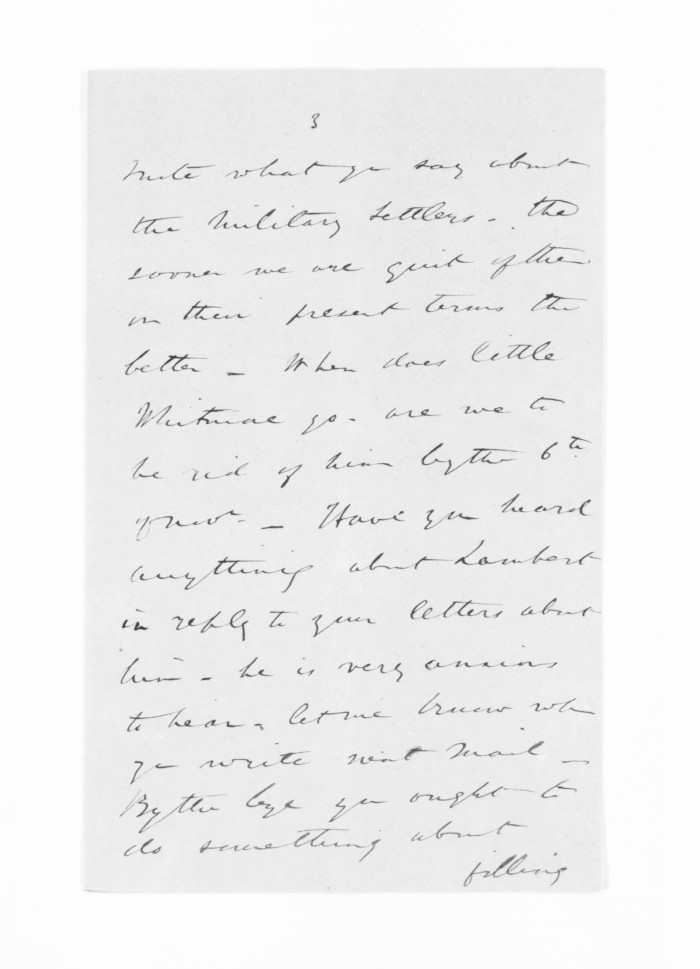 3
note what you say about
the Military Settlers - the
sooner we are quit of them
on their present terms the
better - When does little
Whitmore go - are we to
be rid of him by the 6th
of Novr - Have you heard
anything about Lambert
in reply to your letters about
him - he is very anxious
to hear - let me know when
you write next Mail -
By the bye you ought to
do something about
filling